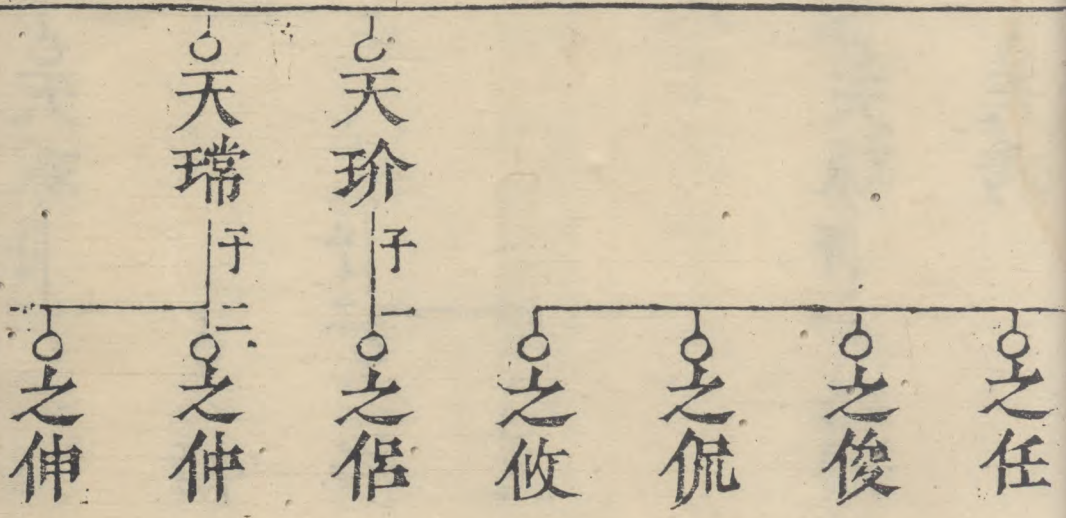 之任
之俊
之侃
之攸
天玠
子一
之侶
天瑺
子二
之仲
之伸